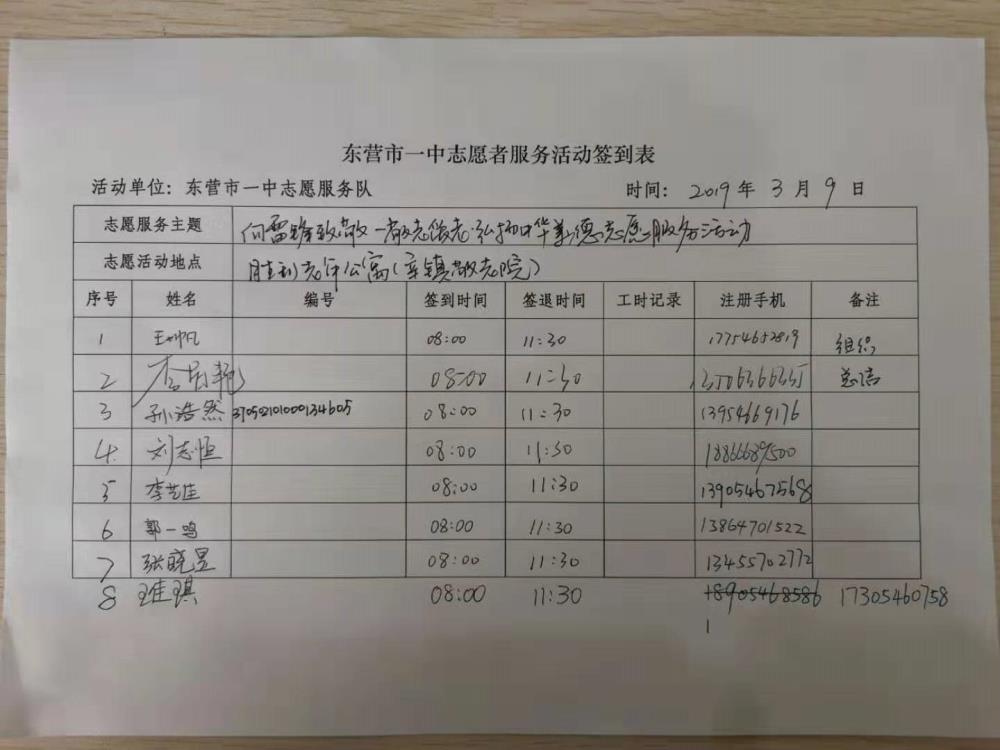 东营市一中志愿者服务活动签到表
活动单位：东营市一中志愿服务队 时间： 2019 年 3 月 9 日
志愿服务主题 向雷锋致敬－敬老爱老·弘扬中华美德志愿服务活动
志愿活动地点 胜利老年公寓（辛镇敬老院）
序号 姓名 编号 签到时间 签退时间 工时记录 注册手机 备注
1 08:00 11:30 17754652819 组织
2 08:00 11:30
3 孙浩然 08:00 11:30 13954669176
4. 刘志恒 08:00 11:30 18866689500
5 李艺佳 08:00 11:30 13905467568
6 郭一鸣 08:00 11:30 13864701522
7 张晓昱 08:00 11:30 13455702772
8 08:00 11:30 18905468586 17305460758